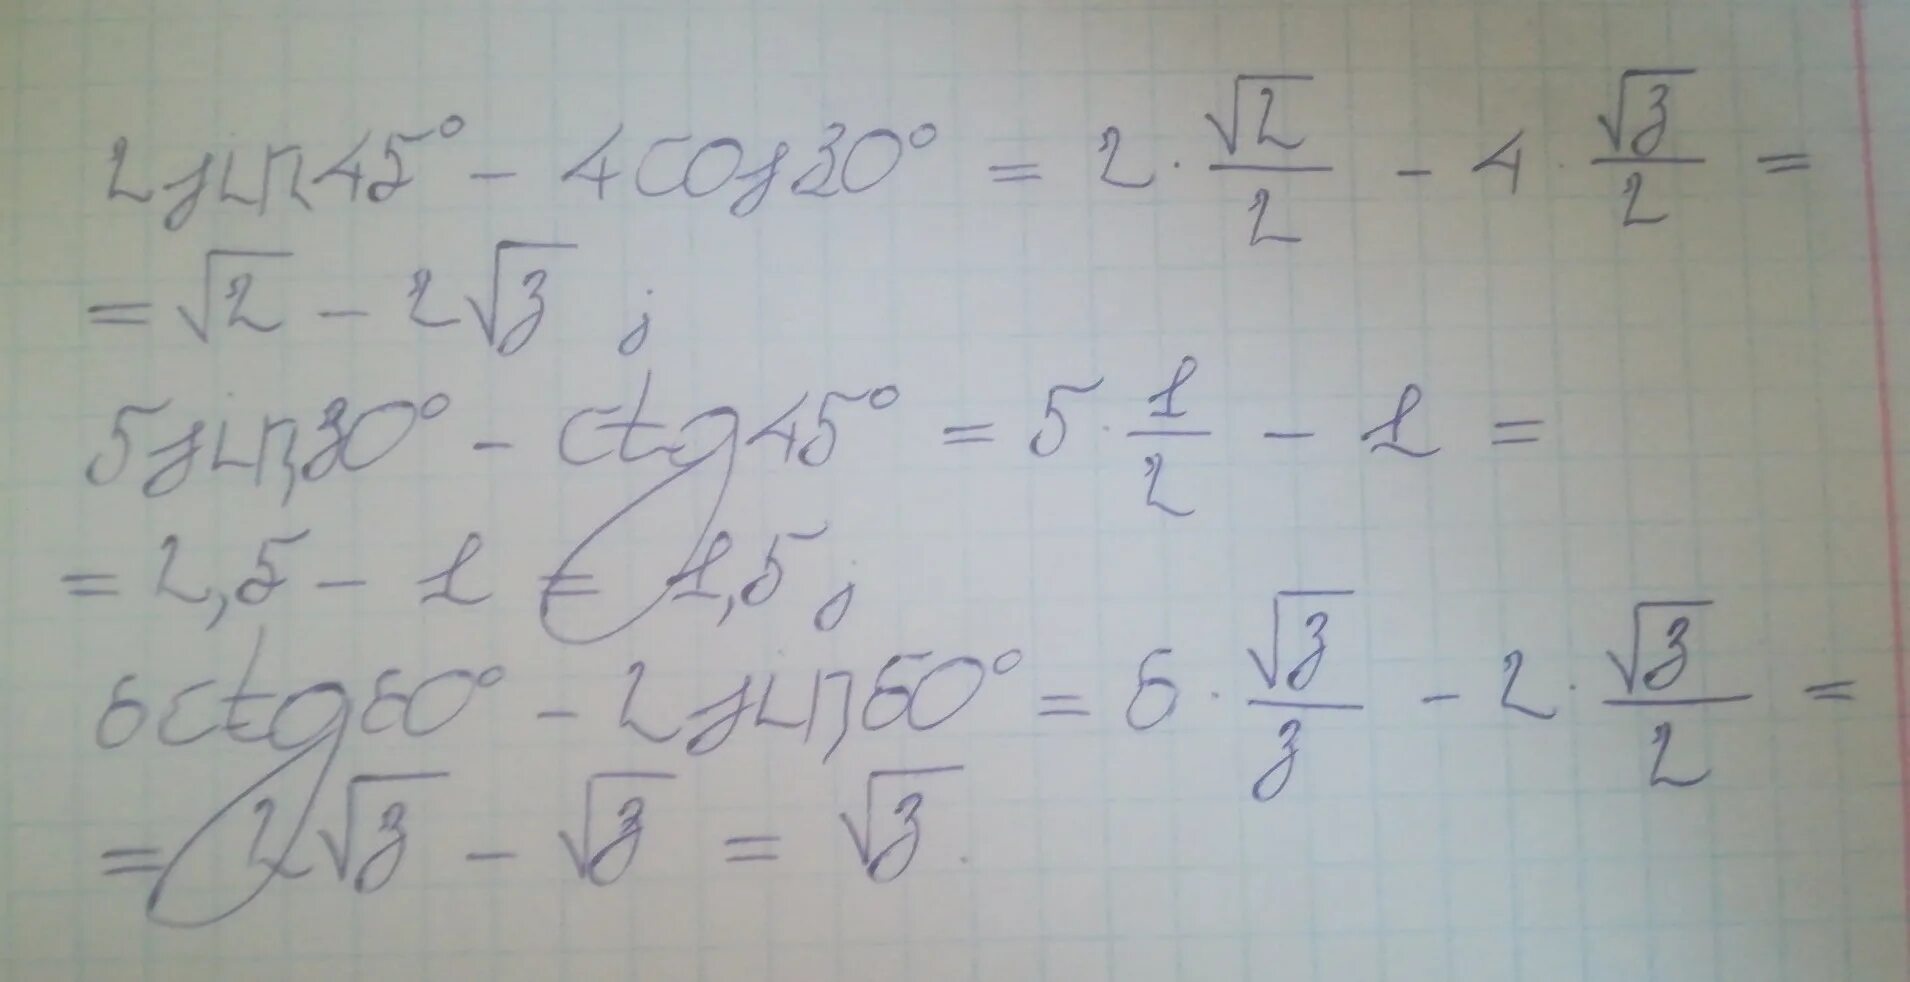 2 sin 45° - 4 cos 30° = 2 · √2/2 - 4 · √3/2 =
= √2 - 2√3 ;
5 sin 30° - ctg 45° = 5 · 1/2 - 1 =
= 2,5 - 1 = 1,5 ;
6 ctg 60° - 2 sin 60° = 6 · √3/3 - 2 · √3/2 =
= 2√3 - √3 = √3.